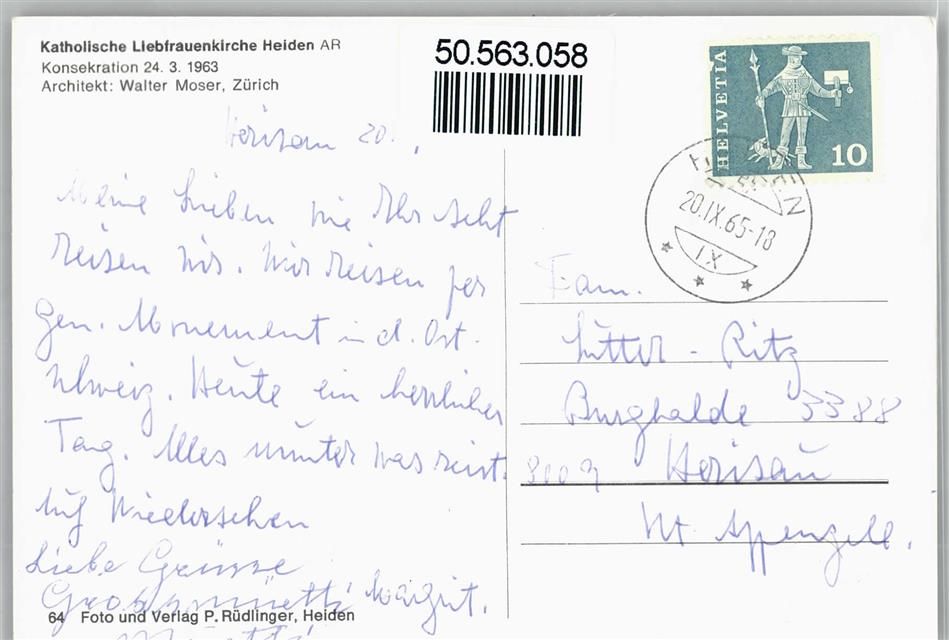 Katholische Liebfrauenkirche Heiden AR
Konsekration 24. 3. 1963
Architekt: Walter Moser, Zürich
50.563.058
HELVETIA
10
20.IX.65-18
IX
Herisau 20.
Meine Lieben wie Ihr seht
reisen wir. Wir reisen per
gen. Monement in d. Ost-
schweiz. Heute ein herrlicher
Tag. Alles munter was reist.
Auf Wiedersehen
Liebe Grüsse
Grossmuetti Margrit.
64 Foto und Verlag P. Rüdlinger, Heiden
Fam.
Sutter - Ritz
Burghalde 3388
Herisau
Kt Appenzell.